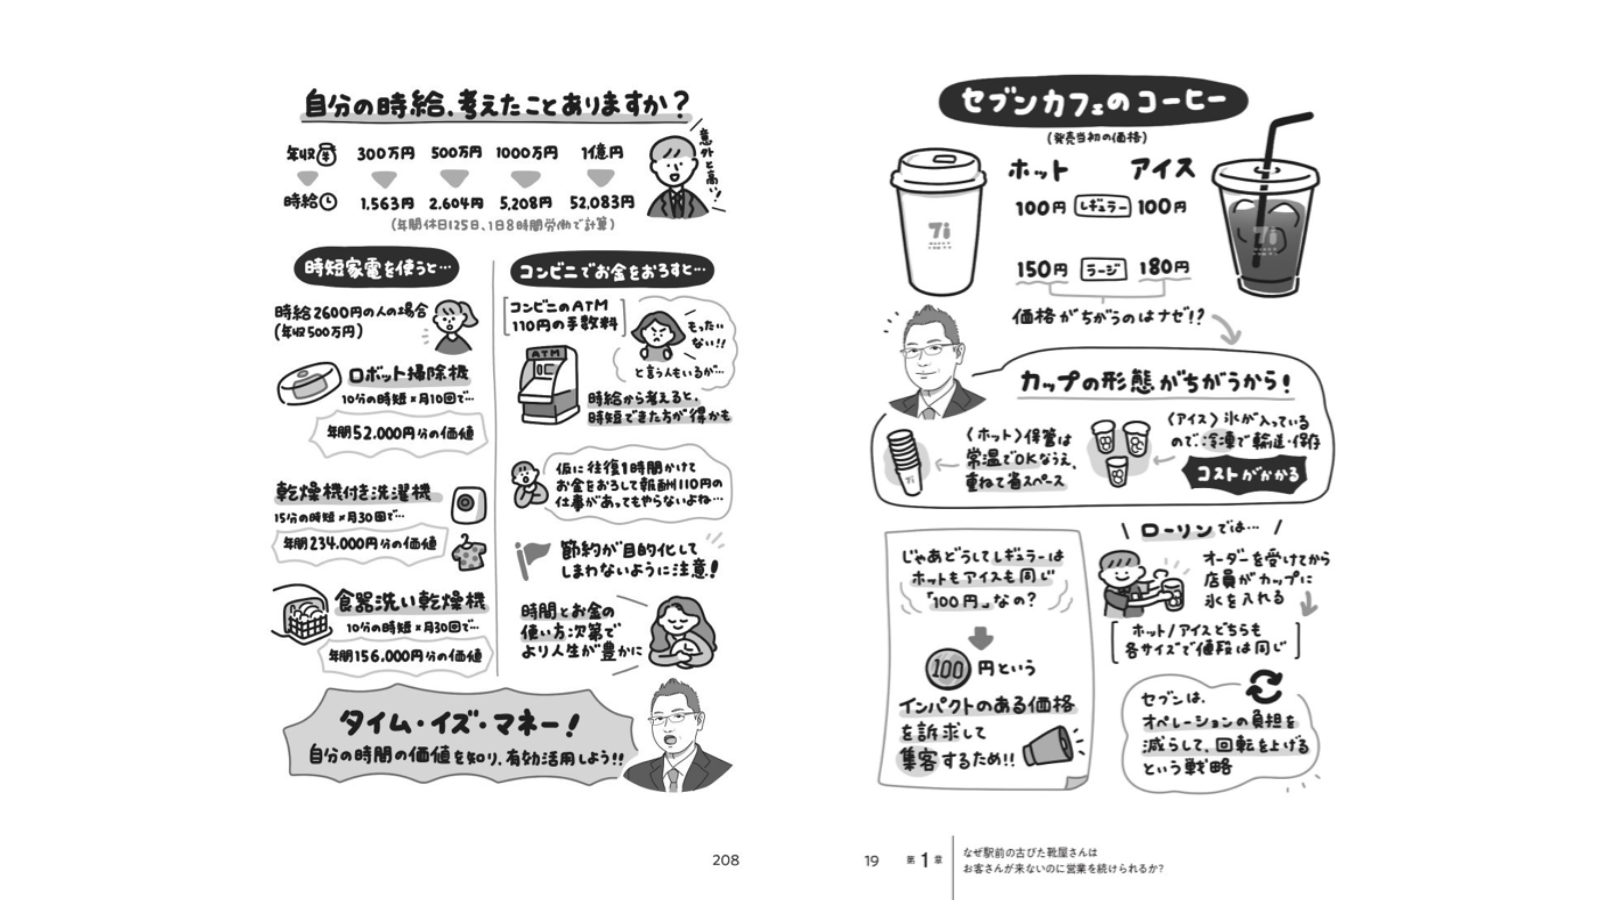 自分の時給、考えたことありますか?
年収 300万円 500万円 1000万円 1億円
時給 1,563円 2,604円 5,208円 52,083円
(年間休日125日、1日8時間労働で計算)
意外と高い!
時短家電を使うと…
時給2600円の人の場合
(年収500万円)
ロボット掃除機
10分の時短×月10回で…
年間52,000円分の価値
乾燥機付き洗濯機
15分の時短×月30回で…
年間234,000円分の価値
食器洗い乾燥機
10分の時短×月30回で…
年間156,000円分の価値
コンビニでお金をおろすと…
コンビニのATM
110円の手数料
もったい
ない!!
と言う人もいるが…
ATM
時給から考えると、
時短できた方が得かも
仮に往復1時間かけて
お金をおろして報酬110円の
仕事があってもやらないよね…
節約が目的化して
しまわないように注意!
時間とお金の
使い方次第で
より人生が豊かに
タイム・イズ・マネー!
自分の時間の価値を知り、有効活用しよう!!
208
セブンカフェのコーヒー
(発売当初の価格)
ホット アイス
100円 レギュラー 100円
150円 ラージ 180円
価格がちがうのはナゼ!?
カップの形態がちがうから!
〈ホット〉保管は
常温でOKなうえ、
重ねて省スペース
〈アイス〉氷が入っている
ので、冷凍で輸送・保存
コストがかかる
じゃあどうしてレギュラーは
ホットもアイスも同じ
「100円」なの?
100円という
インパクトのある価格
を訴求して
集客するため!!
\ ローソンでは… /
オーダーを受けてから
店員がカップに
氷を入れる
ホット/アイスどちらも
各サイズで値段は同じ
セブンは、
オペレーションの負担を
減らして、回転を上げる
という戦略
19 第1章
なぜ駅前の古びた靴屋さんは
お客さんが来ないのに営業を続けられるか?